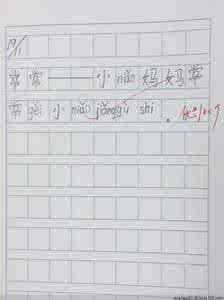 19/11
常常——小niǎo妈妈常
常gěi小niǎo jiǎnggù shi。